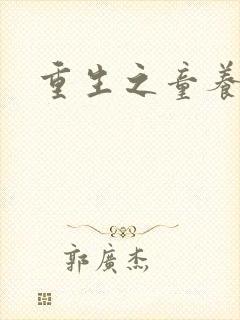 重生之童養
郭廣杰